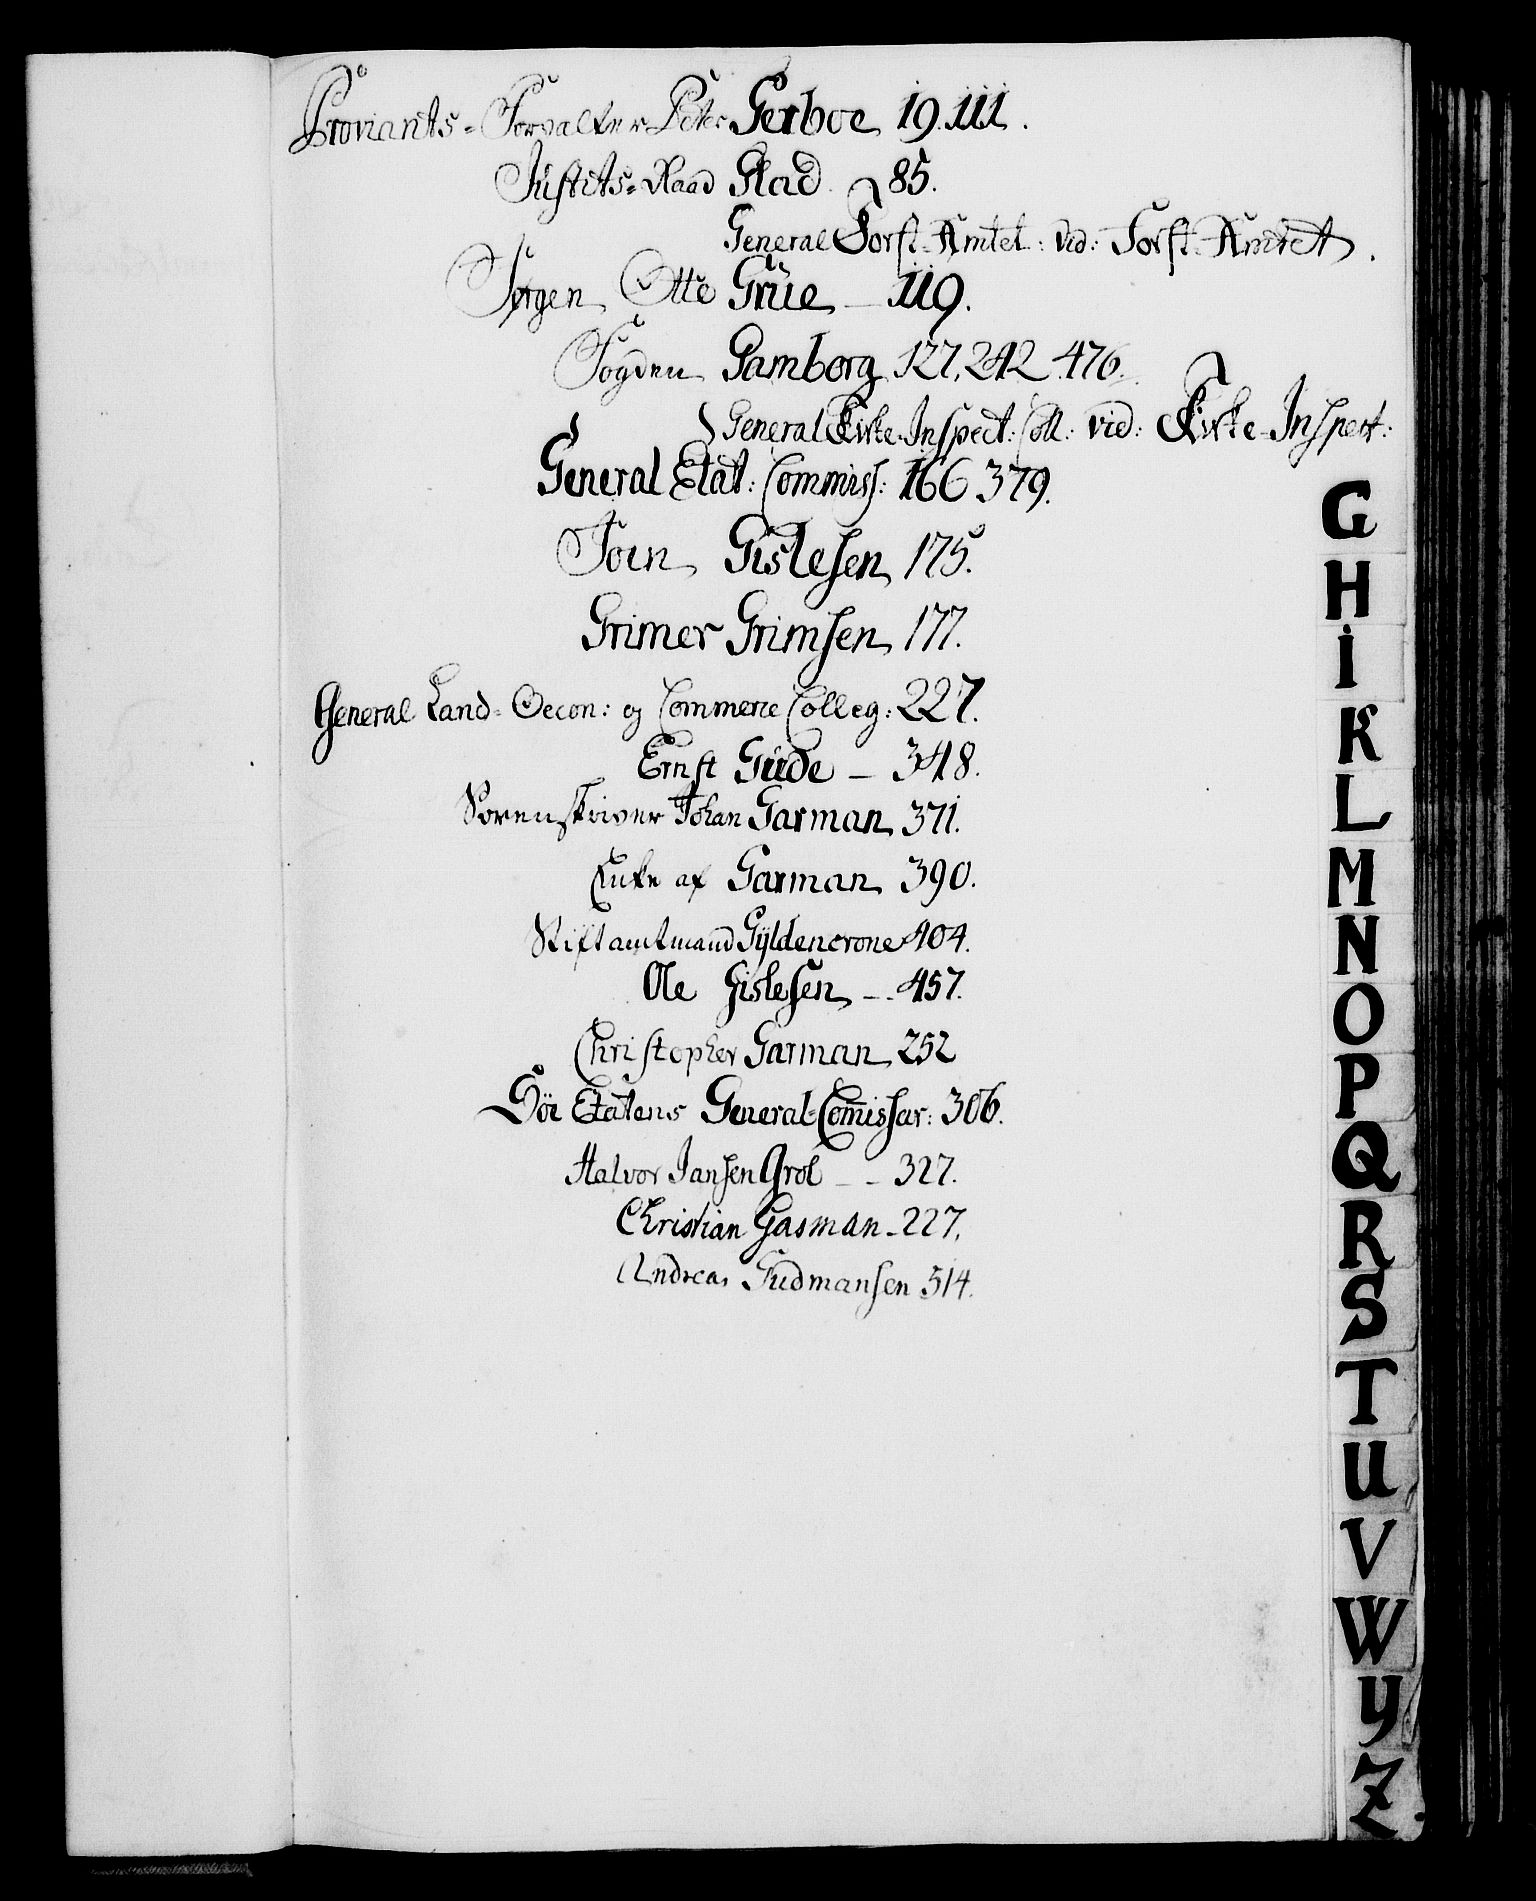 Proviants-Forvalter Peter Gerboe 19.111.
Justits-Raad Glad 85.
General Forst-Amtet: vid: Forst-Amtet.
Jørgen Otte Grüe — 119.
Fogden Gamborg 127, 242. 476.
General Kirke-Inspect: Coll: vid: Kirke-Inspect:
General Etat: Commiss: 166 379.
Join Gislesen 175.
Grimer Grimsen 177.
General Land-Oecon: og Commerce Colleg: 227.
Ernst Güde — 348.
Sorenskriver Johan Garman 371.
Enke af Garman 390.
Stiftamtmand Gÿldencrone 404.
Ole Gislesen — 457.
Christopher Garman 252
Söe Etatens General-Com̄issar: 306.
Halvor Jansen Grol — 327.
Christian Gasman - 227,
Andreas Gudmansen 514.
G
H
I
K
L
M
N
O
P
Q
R
S
T
U
V
W
Y
Z